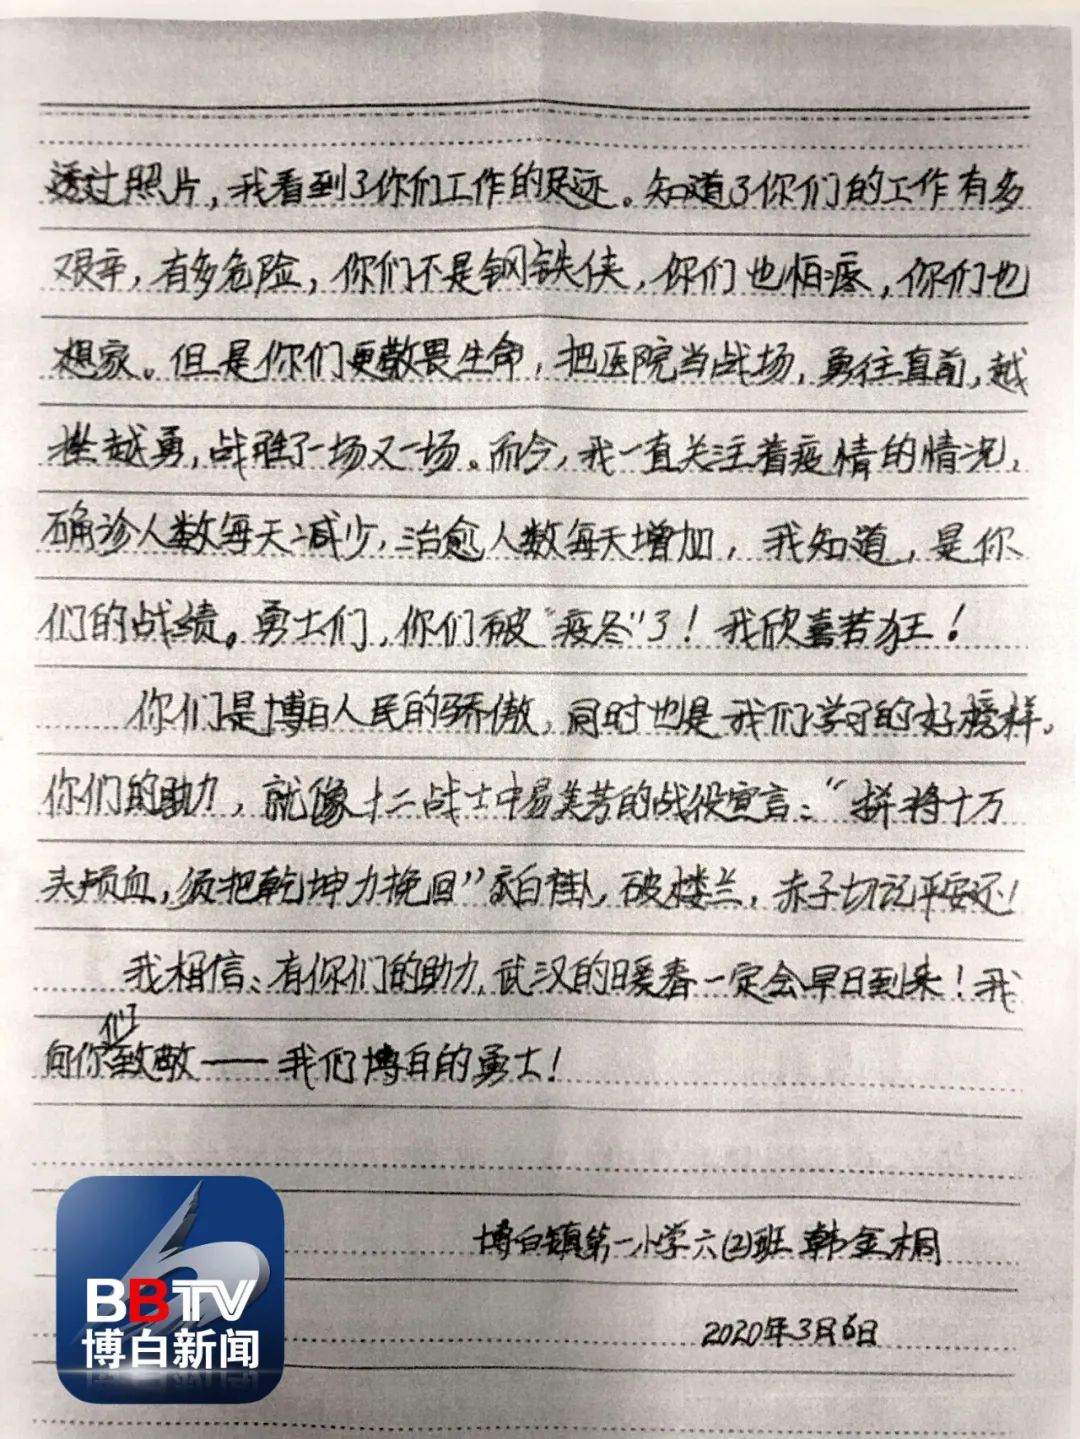 透过照片，我看到了你们工作的足迹。知道了你们的工作有多
艰辛，有多危险，你们不是钢铁侠，你们也怕疼，你们也
想家。但是你们更敬畏生命，把医院当战场，勇往直前，越
挫越勇，战胜了一场又一场。而今，我一直关注着疫情的情况，
确诊人数每天减少，治愈人数每天增加，我知道，是你
们的战绩。勇士们，你们破“疫冬”了！我欣喜若狂！
你们是博白人民的骄傲，同时也是我们学习的好榜样，
你们的助力，就像十二战士中易美芳的战役宣言：“拼将十万
头颅血，须把乾坤力挽回”披白褂，破楼兰，赤子切记平安还！
我相信：有你们的助力，武汉的暖春一定会早日到来！我
向你们致敬——我们博白的勇士！
博白镇第一小学六(2)班 韩金桐
2020年3月6日
BBTV
博白新闻